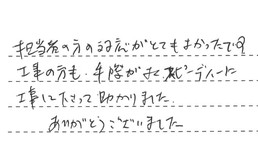 担当者の方の対応がとてもよかったです
工事の方も、手際がよくスピーディーに
工事して下さって助かりました。
ありがとうございました